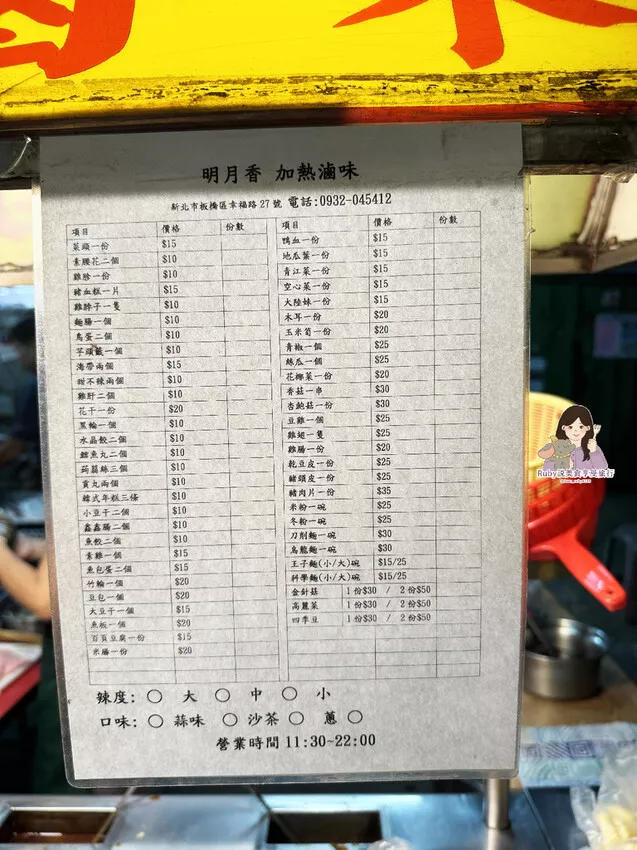 明月香 加熱滷味
新北市板橋區幸福路27號 電話:0932-045412
項目 價格 份數
菜頭一份 $15
素腰花二個 $10
雞胗一份 $10
豬血糕一片 $15
雞脖子一隻 $10
麵腸一個 $10
鳥蛋二個 $10
芋頭籤一個 $10
海帶兩個 $15
甜不辣兩個 $10
雞肝二個 $10
花干一份 $20
黑輪一個 $10
水晶餃二個 $10
鱈魚丸二個 $10
蒟蒻絲三個 $10
貢丸兩個 $10
韓式年糕三條 $10
小豆干二個 $10
鑫鑫腸二個 $10
魚餃二個 $10
素雞一個 $15
魚包蛋二個 $15
竹輪一個 $20
豆包一個 $20
大豆干一個 $15
魚板一個 $20
百頁豆腐一份 $15
米腸一份 $20
項目 價格 份數
鴨血一份 $15
地瓜葉一份 $15
青江菜一份 $15
空心菜一份 $15
大陸妹一份 $15
木耳一份 $20
玉米筍一份 $20
青椒一個 $25
絲瓜一個 $25
花椰菜一份 $20
香菇一串 $30
杏鮑菇一份 $30
豆雞一個 $25
雞翅一隻 $25
雞腸一份 $20
乾豆皮一份 $25
豬頭皮一份 $25
豬肉片一份 $35
米粉一碗 $25
冬粉一碗 $25
刀削麵一碗 $30
烏龍麵一碗 $30
王子麵(小/大)碗 $15/25
科學麵(小/大)碗 $15/25
金針菇 1份$30 / 2份$50
高麗菜 1份$30 / 2份$50
四季豆 1份$30 / 2份$50
辣度: ○ 大 ○ 中 ○ 小
口味: ○ 蒜味 ○ 沙茶 ○ 蔥 ○
營業時間 11:30~22:00
Ruby說美食享受旅行